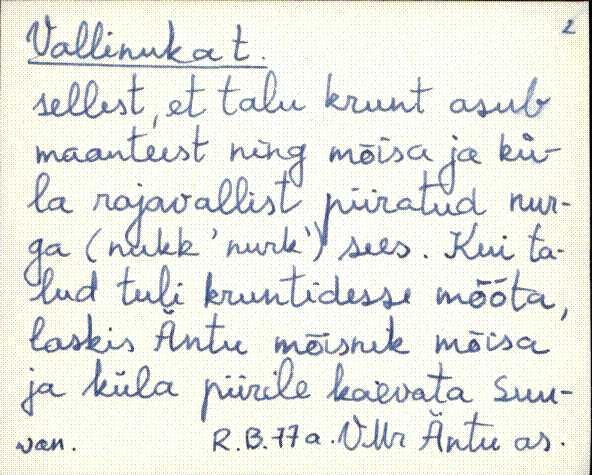 2
Vallinuka t.
sellest, et talu krunt asub
maanteest ning mõisa ja kü-
la rajavallist piiratud nur-
ga (nukk 'nurk') sees. Kui ta-
lud tuli kruntidesse mõõta,
laskis Äntu mõisnik mõisa
ja küla piirile kaevata suu-
R.B. 77 a. VMr Äntu as.